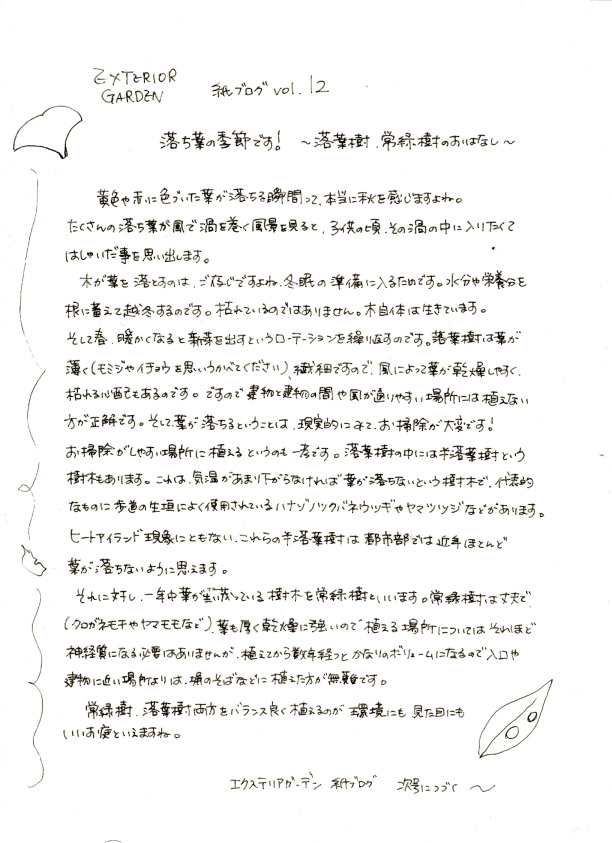 EXTERIOR
GARDEN
紙ブログ vol.12
落ち葉の季節です! ～落葉樹、常緑樹のおはなし～
黄色や赤に色づいた葉が落ちる瞬間って、本当に秋を感じますよね。
たくさんの落ち葉が風で渦を巻く風景を見ると、子供の頃、その渦の中に入りたくて
はしゃいだ事を思い出します。
木が葉を落とすのは、ご存じですよね、冬眠の準備に入るためです。水分や栄養分を
根に蓄えて越冬するのです。枯れているのではありません。木自体は生きています。
そして春、暖かくなると新芽を出すというローテーションを繰り返すのです。落葉樹は葉が
薄く(モミジやイチョウを思いうかべてください)、繊細ですので、風によって葉が乾燥しやすく、
枯れる心配もあるのです。ですので建物と建物の間や風が通りやすい場所には植えない
方が正解です。そして葉が落ちるということは、現実的にみて、お掃除が大変です!
お掃除がしやすい場所に植えるというのも一考です。落葉樹の中には半落葉樹という
樹木もあります。これは、気温があまり下がらなければ葉が落ちないという樹木で、代表的
なものに歩道の生垣によく使用されているハナゾノツクバネウツギやヤマツツジなどがあります。
ヒートアイランド現象にともない、これらの半落葉樹は都市部では近年ほとんど
葉が落ちないように思えます。
それに対し、一年中葉が生い茂っている樹木を常緑樹といいます。常緑樹は丈夫で、
(クロガネモチやヤマモモなど)、葉も厚く乾燥に強いので植える場所についてはそれほど
神経質になる必要はありませんが、植えてから数年経つとかなりのボリュームになるので入口や
建物に近い場所よりは、塀のそばなどに植えた方が無難です。
常緑樹、落葉樹両方をバランス良く植えるのが環境にも見た目にも
いいお庭といえますね。
エクステリアガーデン 紙ブログ 次号につづく～